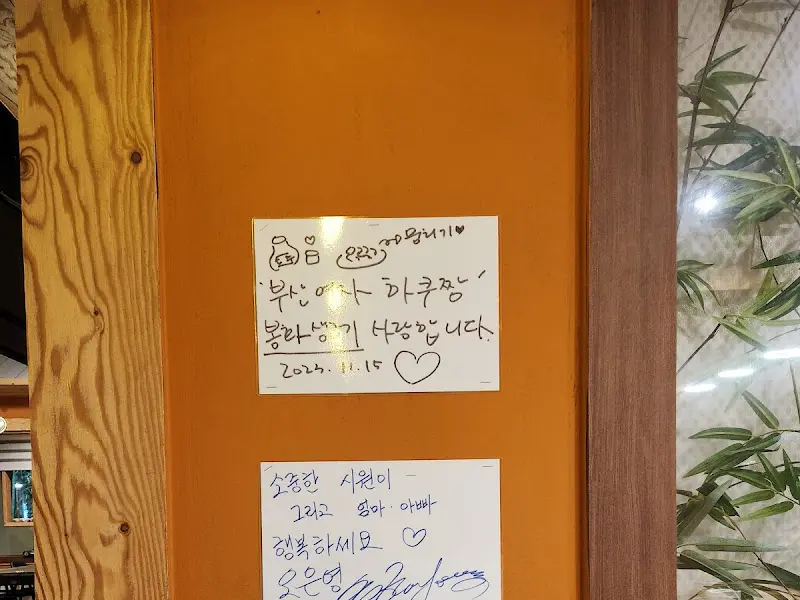 '부산여자 하쿠짱'
봉화생기 사랑합니다.
2023. 11. 15
소중한 시원이
그리고 엄마·아빠
행복하세요
오은영